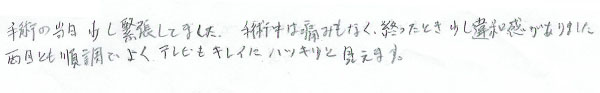 手術の当日少し緊張してました。手術中は痛みもなく、終ったとき少し違和感がありました
両目とも順調でよくテレビもキレイにハッキリと見えます。